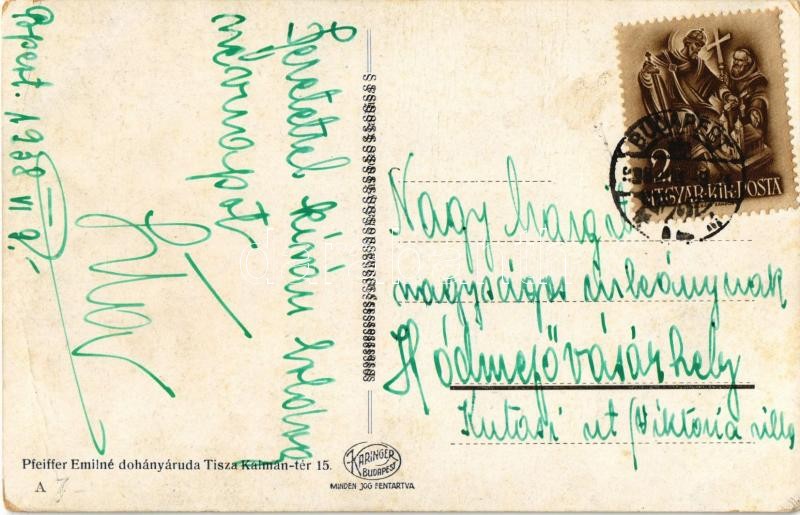 Bpest. 1938 VI 9.
Szeretettel kíván boldog
névnapot
Nagy Margit
nagyságos úrleánynak
Hódmezővásárhely
Kutasi út (Viktória villa
BUDAPEST
2
MAGYAR·KIR·POSTA
Pfeiffer Emilné dohányáruda Tisza Kálmán-tér 15.
A 7
KARINGER
BUDAPEST
MINDEN JOG FENTARTVA